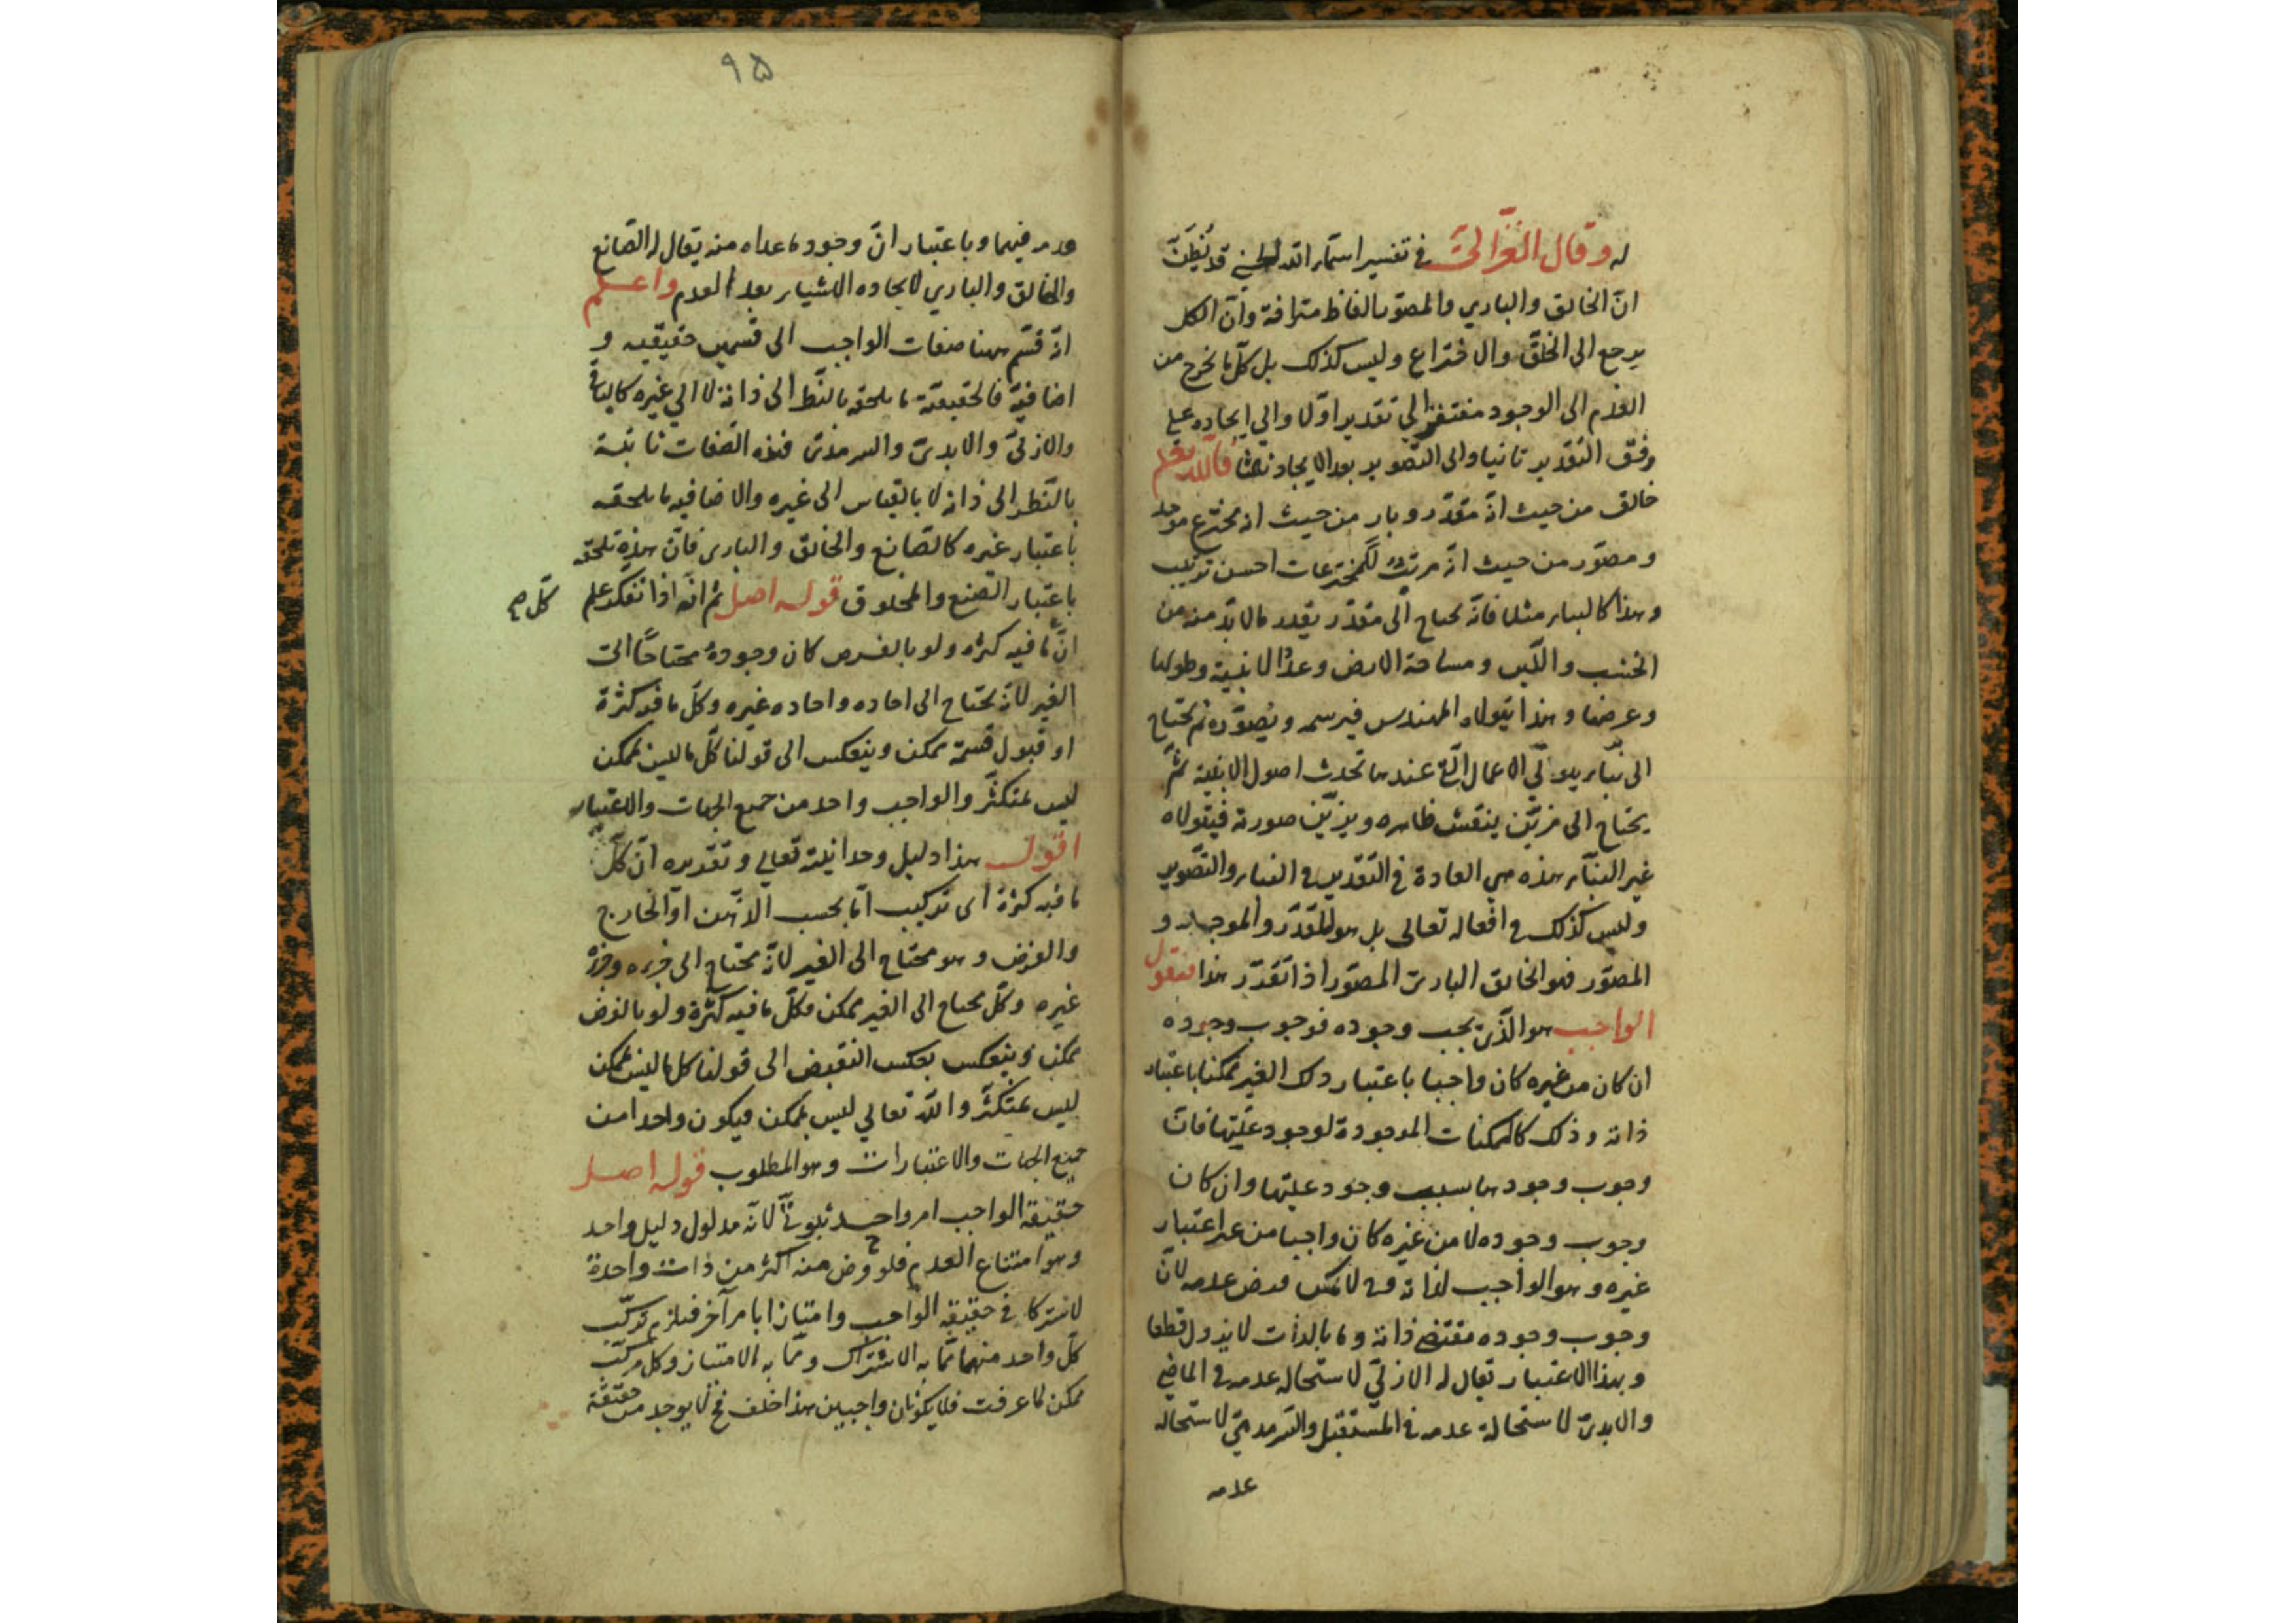 له وقال الغزالي في تفسير اسمآء الله الحسنى قد يُظَنّ
انّ الخالق والباري والمصوّر الفاظ مترادفة وانّ الكل
يرجع الى الخلق والاختراع وليس كذلك بل كلّ ما يخرج من
العدم الى الوجود مفتقر الي تقدير اوّلا والي ايجاده علي
وفق التقدير ثانيا والى التصوير بعد الايجاد ثالثا فالله تعالى
خالق من حيث انّه مقدّر وبارٍ من حيث انه مخترع موجد
ومصوّر من حيث انّه مرتّب للمخترعات احسن ترتيب
وهذا كالبناء مثلا فانّه يحتاج الى مقدّر يقدر ما لا بدّ منه من
الخشب واللّبن ومساحة الارض وعدد الابنية وطولها
وعرضها وهذا يتولاه المهندس فيرسمه ويصوّره ثم يحتاج
الى بنّاء يتولّي الاعمال التي عندها تحدث اصول الابنية ثمّ
يحتاج الى مزيّن ينقش ظاهره ويزيّن صورته فيتولاه
غير البنّاء هذه هي العادة في التقدير في البناء والتصوير
وليس كذلك في افعاله تعالى بل هو المقدّر والموجد و
المصوّر فهو الخالق البارئ المصوّر اذا تقدّر هذا فنقول
الواجب هو الّذي يجب وجوده فوجوب وجوده
ان كان من غيره كان واجبا باعتبار ذلك الغير ممكنا باعتبار
ذاته وذلك كالممكنات الموجودة لوجود علّتها فانّ
وجوب وجودها بسبب وجود علّتها وان كان
وجوب وجوده لا من غيره كان واجبا من غير اعتبار
غيره وهو الواجب لذاته فلا يمكن فرض عدمه لانّ
وجوب وجوده مقتضى ذاته وما بالذات لا يزول قطعا
وبهذا الاعتبار يقال له الازليّ لاستحالة عدمه في الماضي
والابديّ لاستحالة عدمه في المستقبل والسرمديّ لاستحالة
عدمه
٩٥
عدمه فيهما وباعتبار انّ وجود ما عداه منه يقال له الصانع
والخالق والباري لايجاده الاشياء بعد العدم واعلم
انّه قسّم ههنا صفات الواجب الى قسمين حقيقيه و
اضافيّة فالحقيقيّة ما يلحقه بالنظر الى ذاته لا الي غيره كالباقي
والازليّ والابديّ والسرمديّ فهذه الصفات ثابتة
بالنظر الى ذاته لا بالقياس الى غيره والاضافيه ما يلحقه
باعتبار غيره كالصانع والخالق والبارى فانّ هذه تلحقه
باعتبار الصنع والمخلوق قوله اصل ثم انّه اذا تفكر علم
كلّ صح
انّ ما فيه كثرة ولو بالفرض كان وجوده محتاجًا الى
الغير لانّه يحتاج الى احاده واحاده غيره وكلّ ما فيه كثرة
او قبول قسمة ممكن وينعكس الى قولنا كلّ ما ليس بممكن
ليس بمتكثّر والواجب واحد من جميع الجهات والاعتبار
اقول هذا دليل وحدانيّته تعالي وتقديره انّ كلّ
ما فيه كثرة اى تركيب امّا بحسب الذهن او الخارج
والفرض وهو محتاج الى الغير لانّه محتاج الى جزءه وجزءه
غيره وكلّ محتاج الى الغير ممكن فكلّ ما فيه كثرة ولو بالفرض
ممكن وينعكس بعكس النقيض الى قولنا كل ما ليس بممكن
ليس بمتكثّر والله تعالي ليس بممكن فيكون واحدا من
جميع الجهات والاعتبارات وهو المطلوب قوله اصل
حقيقة الواجب امر واحد ثبوتيّ لانّه مدلول دليل واحد
وهو امتناع العدم فلو فرض منه اكثر من ذات واحدة
لاشتركا في حقيقة الواجب وامتازا بامر آخر فيلزم تركّب
كلّ واحد منهما ممّا به الاشتراك وممّا به الامتياز وكل مركّب
ممكن لما عرفت فلا يكونان واجبين هذا خلف فح لا يوجد من حقيقة